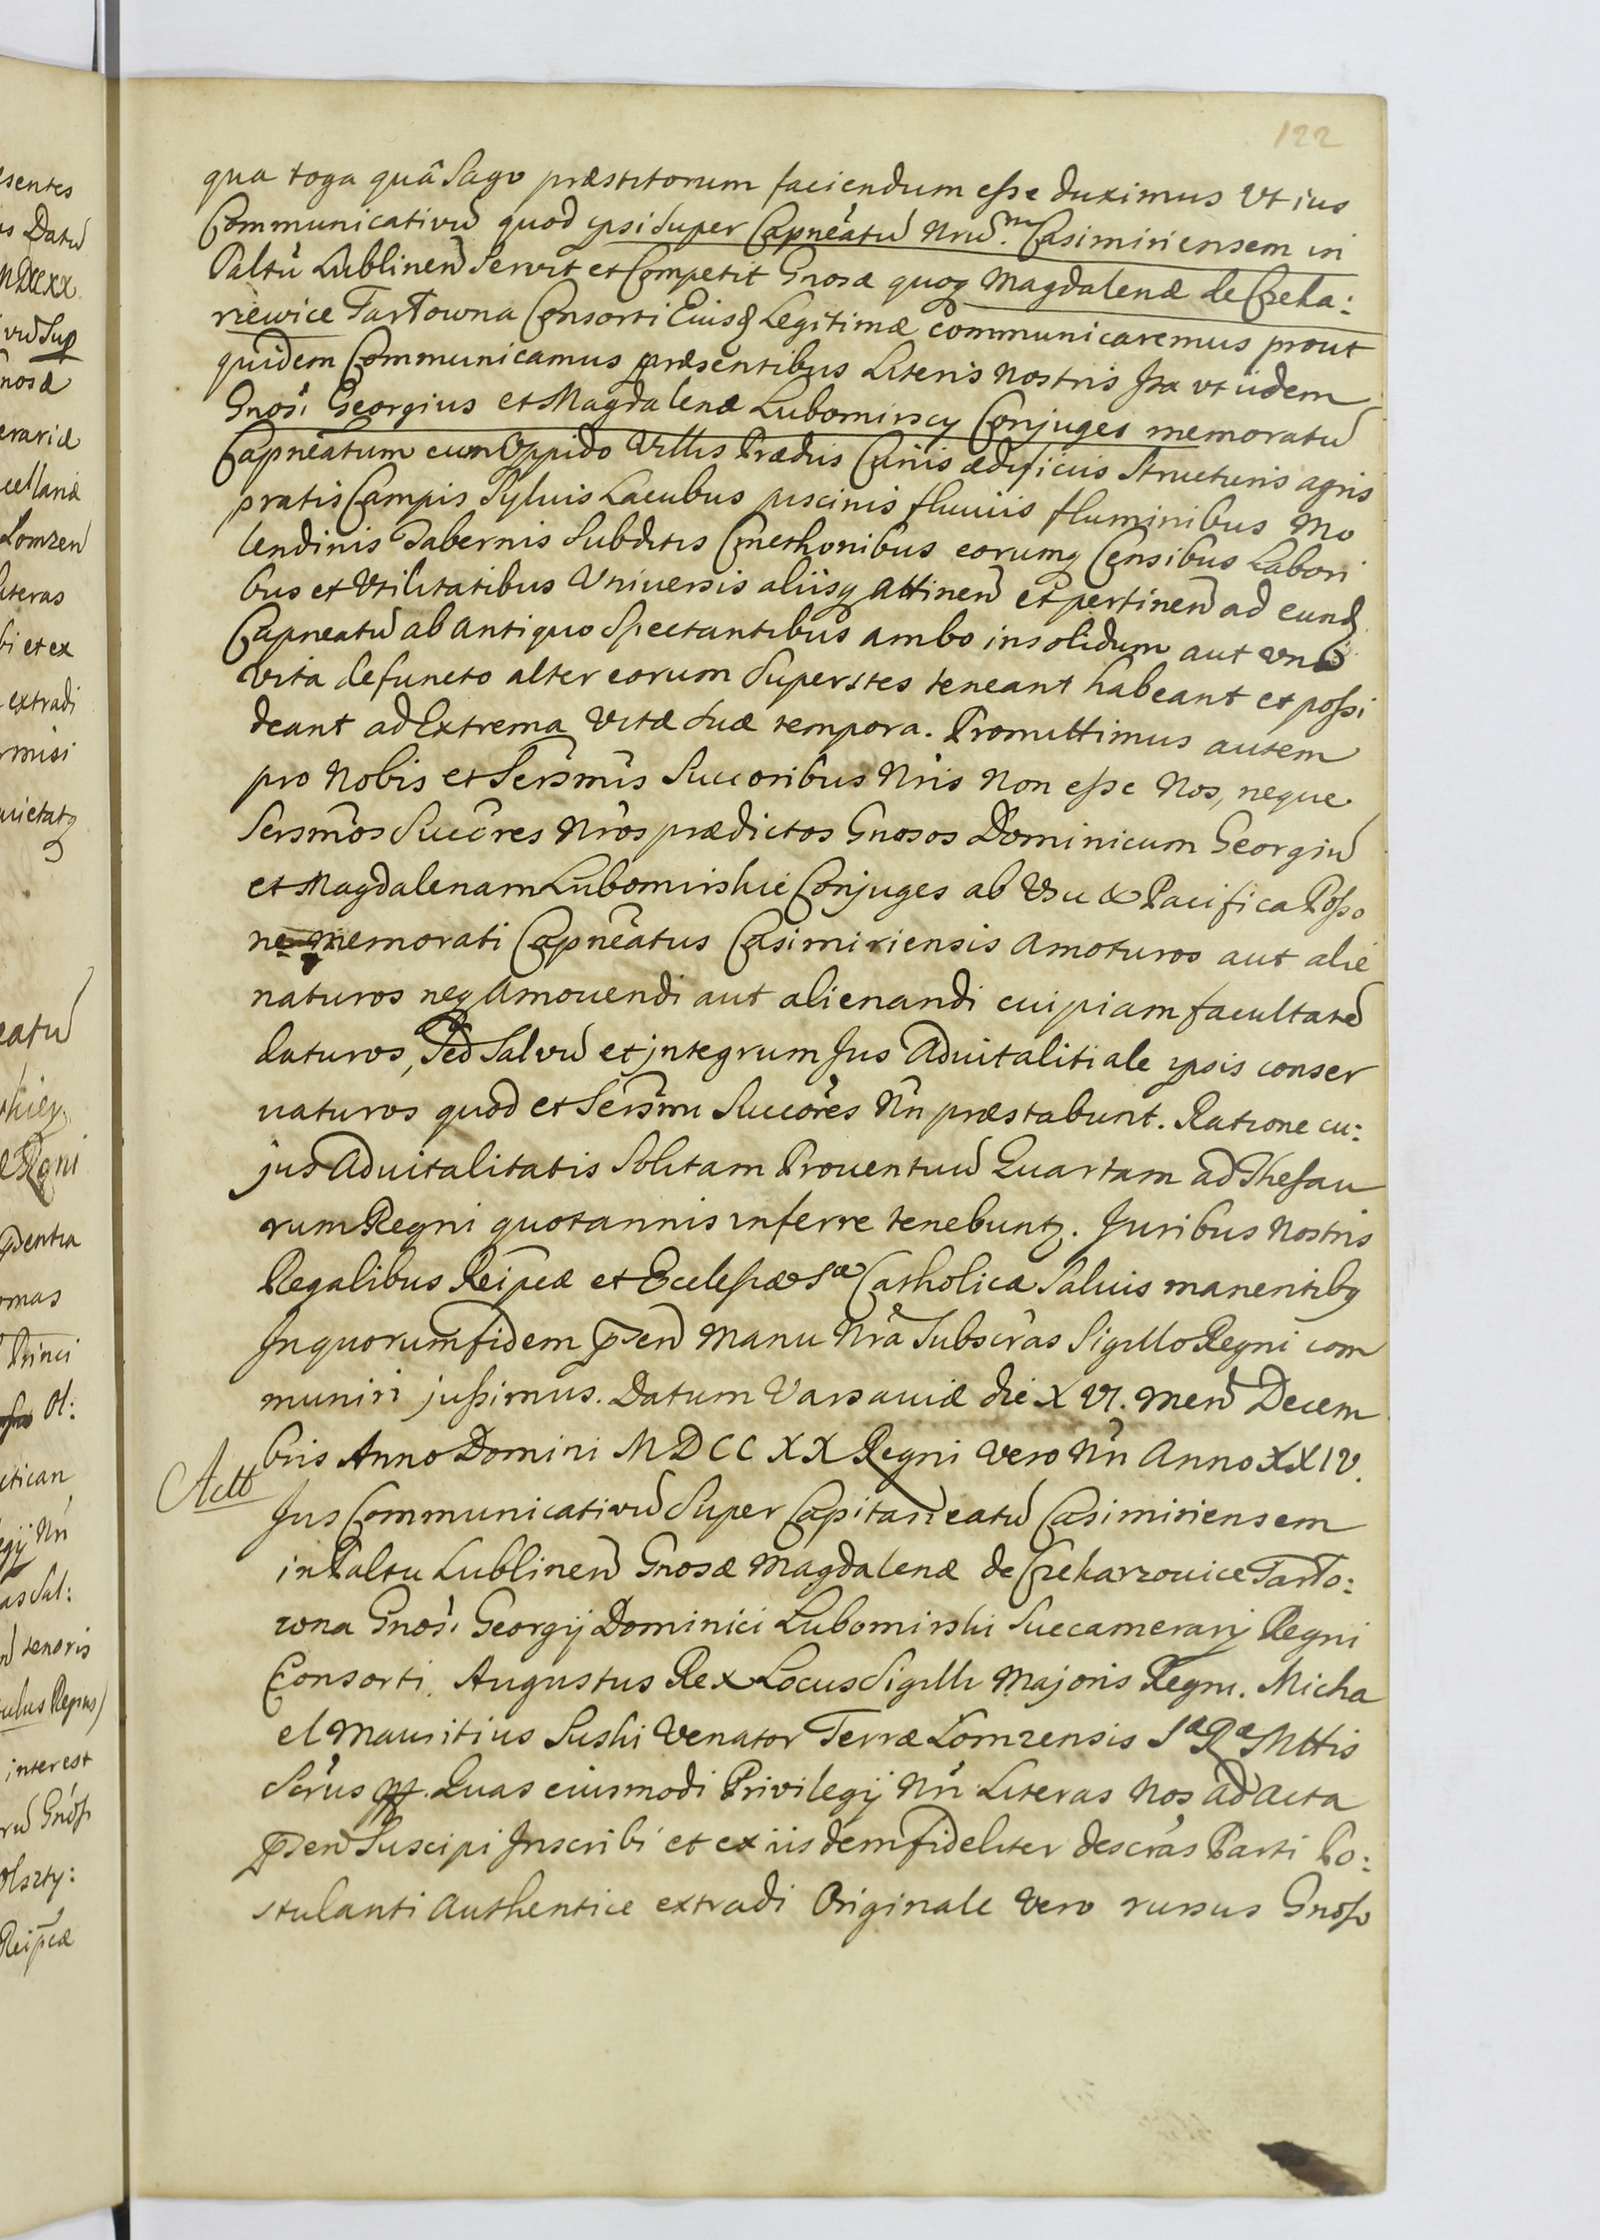 122
qua toga quâ Sago præstitorum faciendum esse duximus Vt ius
Communicativũ quod ypsi Super Capneatũ Nrũ.m Casimiriensem in
Paltũ Lublinen̄ Servit et Competit Gnosæ quoq Magdalenæ de Czeka:
rzewice Tarłowna Consorti Eiusd Legitimæ communicaremus prout
quidem Communicamus præsentibus Literis nostris Ita vt iidem
Gnosi Georgius et Magdalenæ Lubomirscy Conjuges memoratũ
Capneatum cum Oppido Villis Prædiis Curiis ædificiis Structuris agris
pratis Campis Sylvis Lacubus piscinis fluviis fluminibus Mo
lendinis Tabernis Subditis Cmethonibus eorumq Censibus Labori
bus et Vtilitatibus Vniversis aliisq Attinen̄ et pertinen̄ ad eund
Capneatũ ab antiquo Spectantibus ambo insolidum aut vno
vita defuncto alter eorum Superstes teneant habeant et possi
deant ad Extrema Vitæ Suæ tempora. Promittimus autem
pro Nobis et Sersmis Succoribus Nris Non esse Nos, neque
Sersmos Succres Nros prædictos Gnosos Dominicum Georgiũ
et Magdalenam Lubomirskie Conjuges ab Vsu & Pacifica Posso
ne memorati Capneatus Casimiriensis amoturos aut alie
naturos neq Amovendi aut alienandi cuipiam facultatẽ
daturos, Sed Salvũ et jntegrum Jus Advitalitiale ypsis conser
vaturos quod et Sersmi Succores Nri præstabunt. Ratione cu:
jus Advitalitatis Solitam Proventuũ Quartam ad Thesau
rum Regni quotannis inferre tenebuntr. Juribus Nostris
Regalibus Reipcæ et Ecclesiæ Sæ Catholicæ Salvis manentibq
In quorum fidem psen̄ Manu Nra Subscras Sigillo Regni com
muniri jussimus. Datum Varsaviæ die XVI. Men̄ Decem
bris Anno Domini MDCCXX Regni Vero Nri Anno XXIV.
Jus Communicativũ Super Capitaneatũ Casimiriensem
in Paltu Lublinen̄ Gnosæ Magdalenæ de Czekarzowice Tarło:
wna Gnosi Georgij Dominici Lubomirski Succamerarij Regni
Consorti. Augustus Rex Locus Sigilli Majoris Regni. Micha
el Mauritius Suski Venator Terræ Lomzensis Sæ Ræ Mttis
Scrius Quas eiusmodi Privilegij Nri Literas Nos ad Acta
psen̄ Suscipi Inscribi et ex iisdem fideliter descras Parti Po:
stulanti Authentice extradi Originale Vero rursus Gnoso